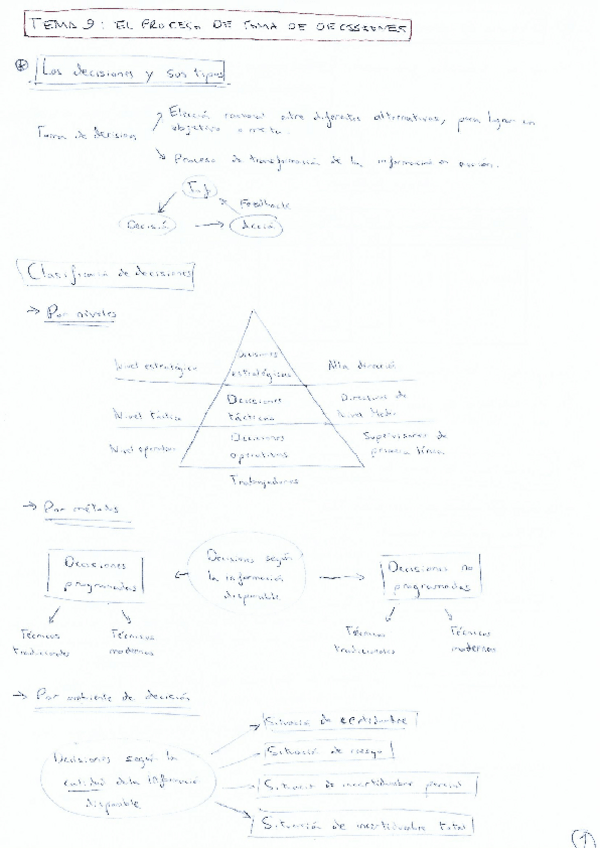 TEMA 9: EL PROCESO DE TOMA DE DECISIONES
Las decisiones y sus tipos
Elección racional entre diferentes alternativas, para lograr un
objetivo o meta.
Toma de decisión
Proceso de transformación de la información en acción.
Inf.
Feedback
Decisión
Acción
Clasificación de decisiones
Por niveles
Nivel estratégico
Decisiones
estratégicas
Alta dirección
Nivel táctico
Decisiones
tácticas
Directivos de
Nivel Medio
Nivel operativo
Decisiones
operativas
Supervisores de
primera línea
Trabajadores
Por métodos
Decisiones
programadas
Decisiones según
la información
disponible
Decisiones no
programadas
Técnicas
tradicionales
Técnicas
modernas
Técnicas
tradicionales
Técnicas
modernas
Por ambiente de decisión
Decisiones según la
cantidad de la información
disponible
Situación de certidumbre
Situación de riesgo
Situación de incertidumbre parcial
Situación de incertidumbre total
(1)